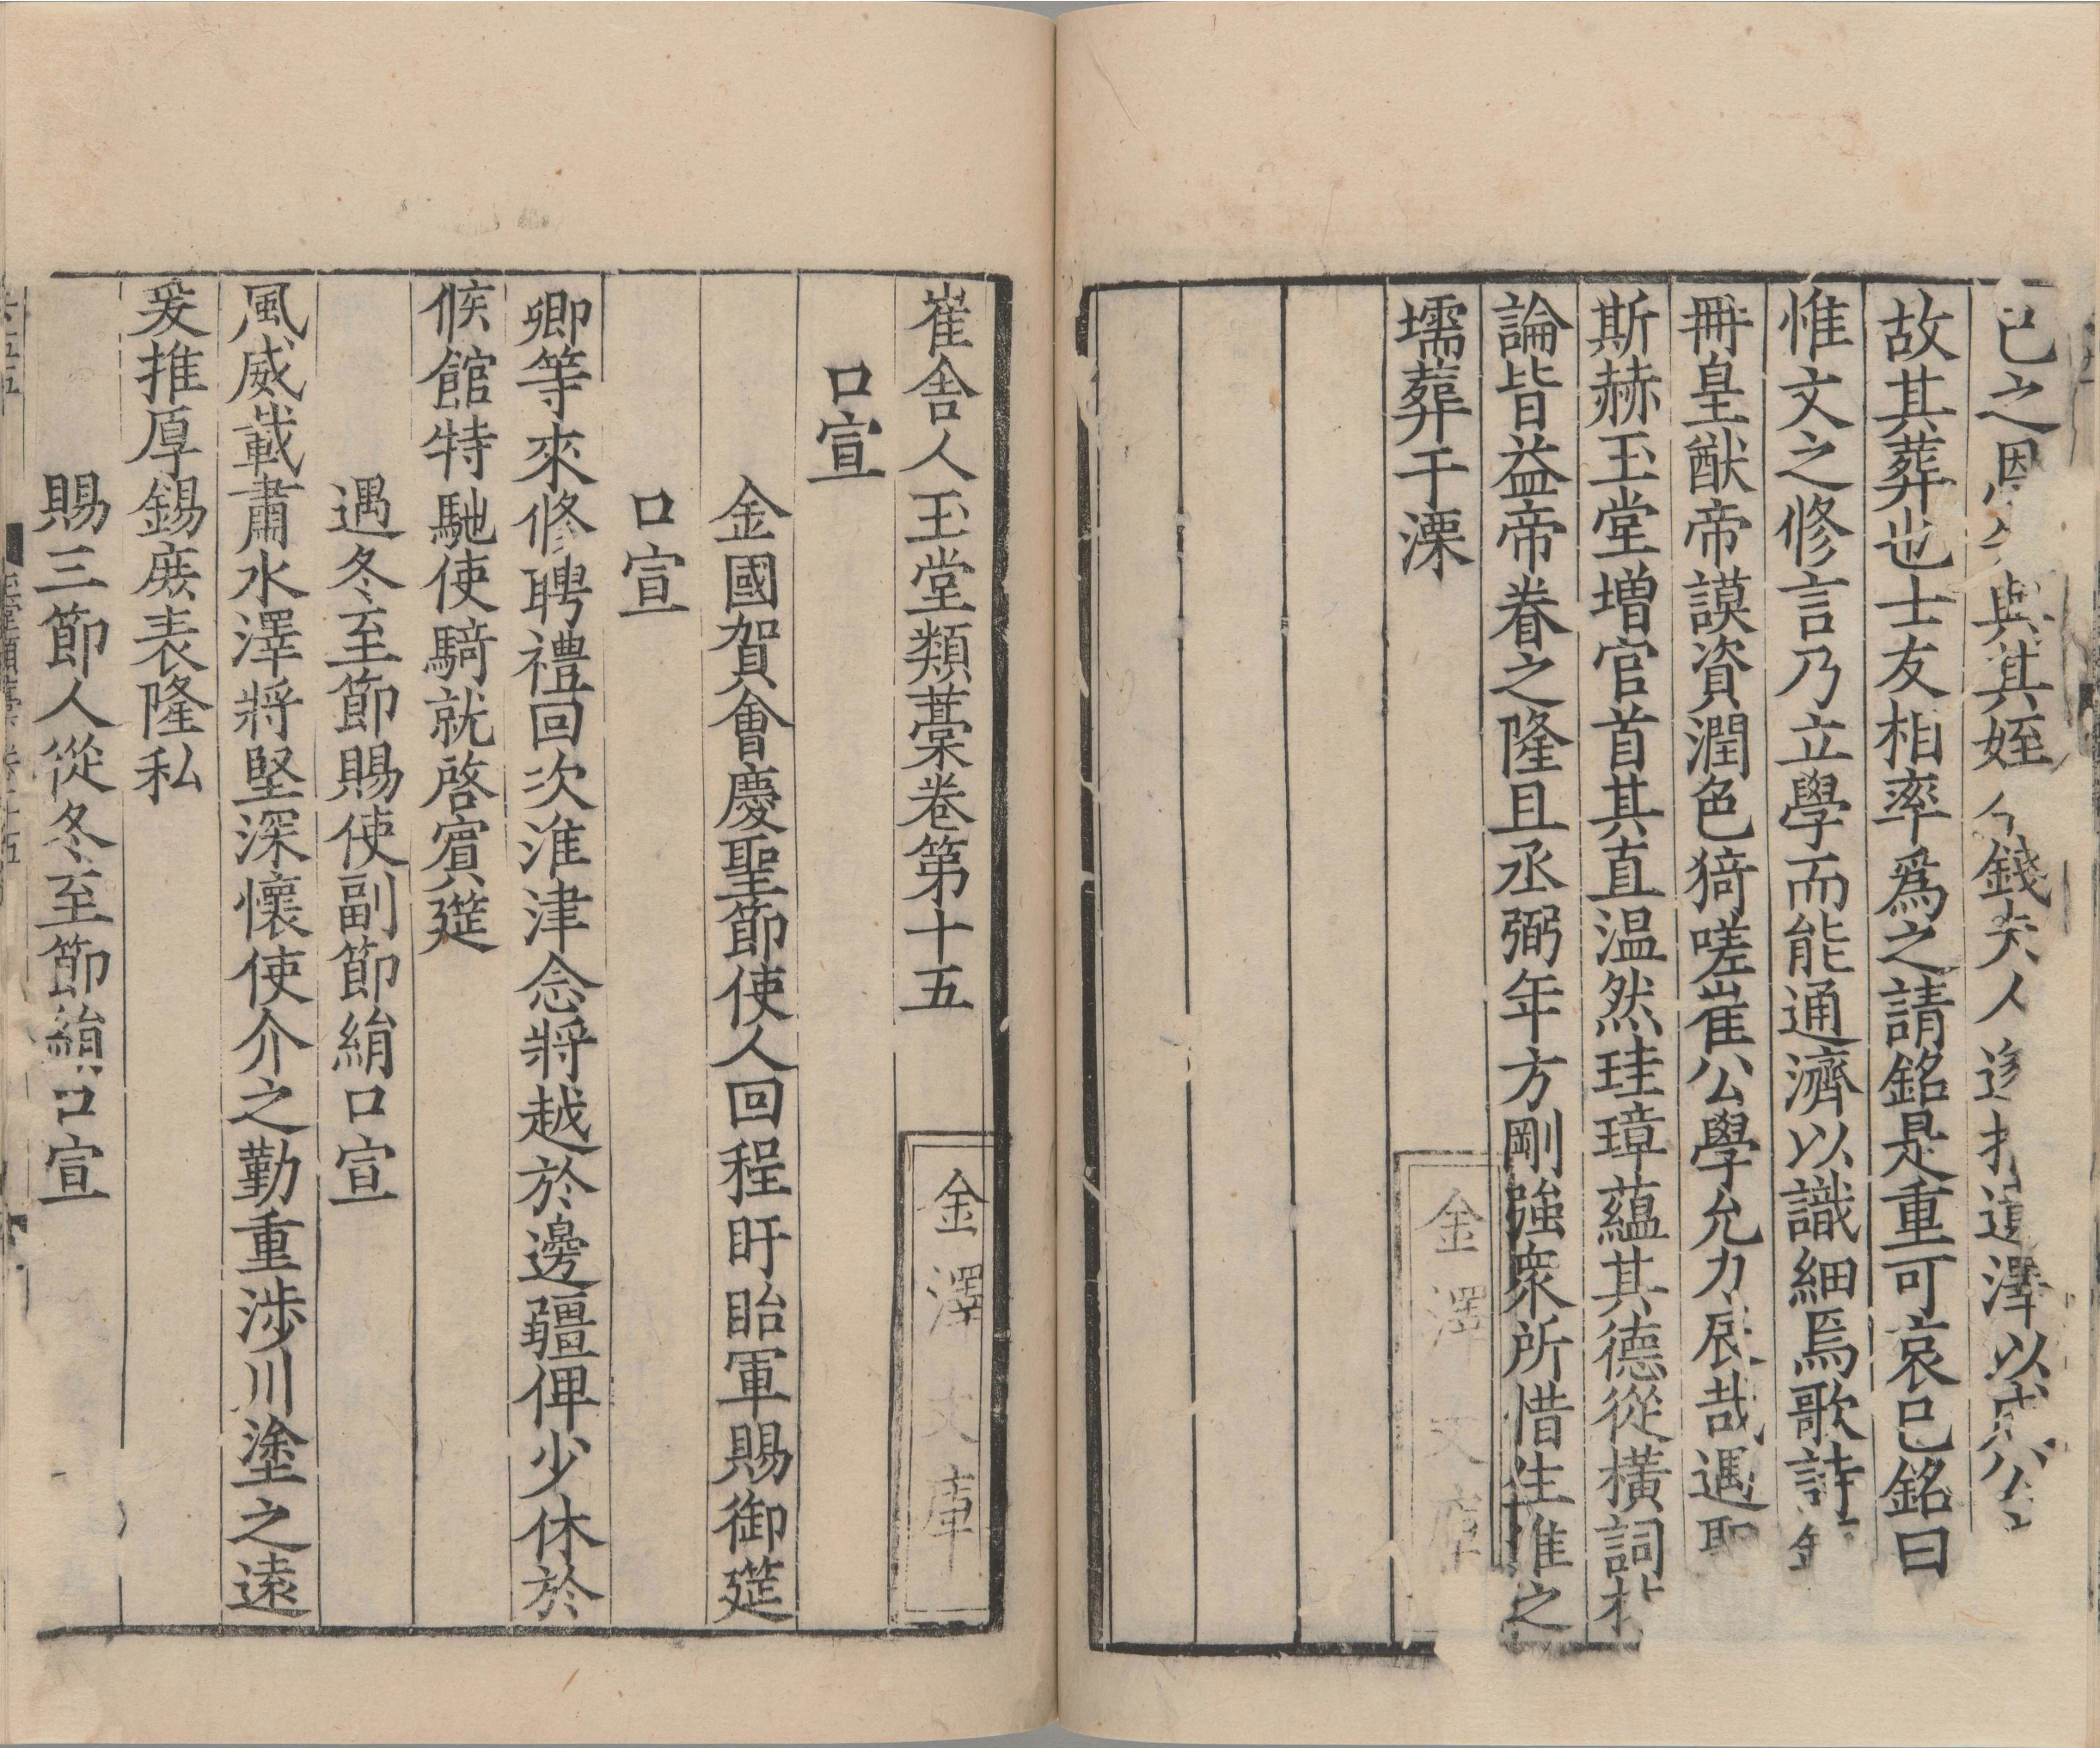 已之恩 與其姪 錢夫人 遺澤以 公
故其葬也士友相率爲之請銘是重可哀已銘曰
惟文之修言乃立學而能通濟以識細焉歌詩
冊皇猷帝謨資潤色猗嗟崔公學允力展哉遇
斯赫玉堂增官首其直温然珪璋蘊其德從橫詞
論皆益帝眷之隆且丞弼年方剛強衆所惜生惟之
壖葬于溧
金澤文庫
崔舍人玉堂類藁卷第十五
金澤文庫
口宣
金國賀會慶聖節使人回程盱眙軍賜御筵
口宣
卿等來修聘禮回次淮津念將越於邊疆俾少休於
候館特馳使騎就啓賓筵
遇冬至節賜使副節絹口宣
風威載肅水澤將堅深懷使介之勤重涉川塗之遠
爰推厚錫庶表隆私
賜三節人從冬至節絹口宣